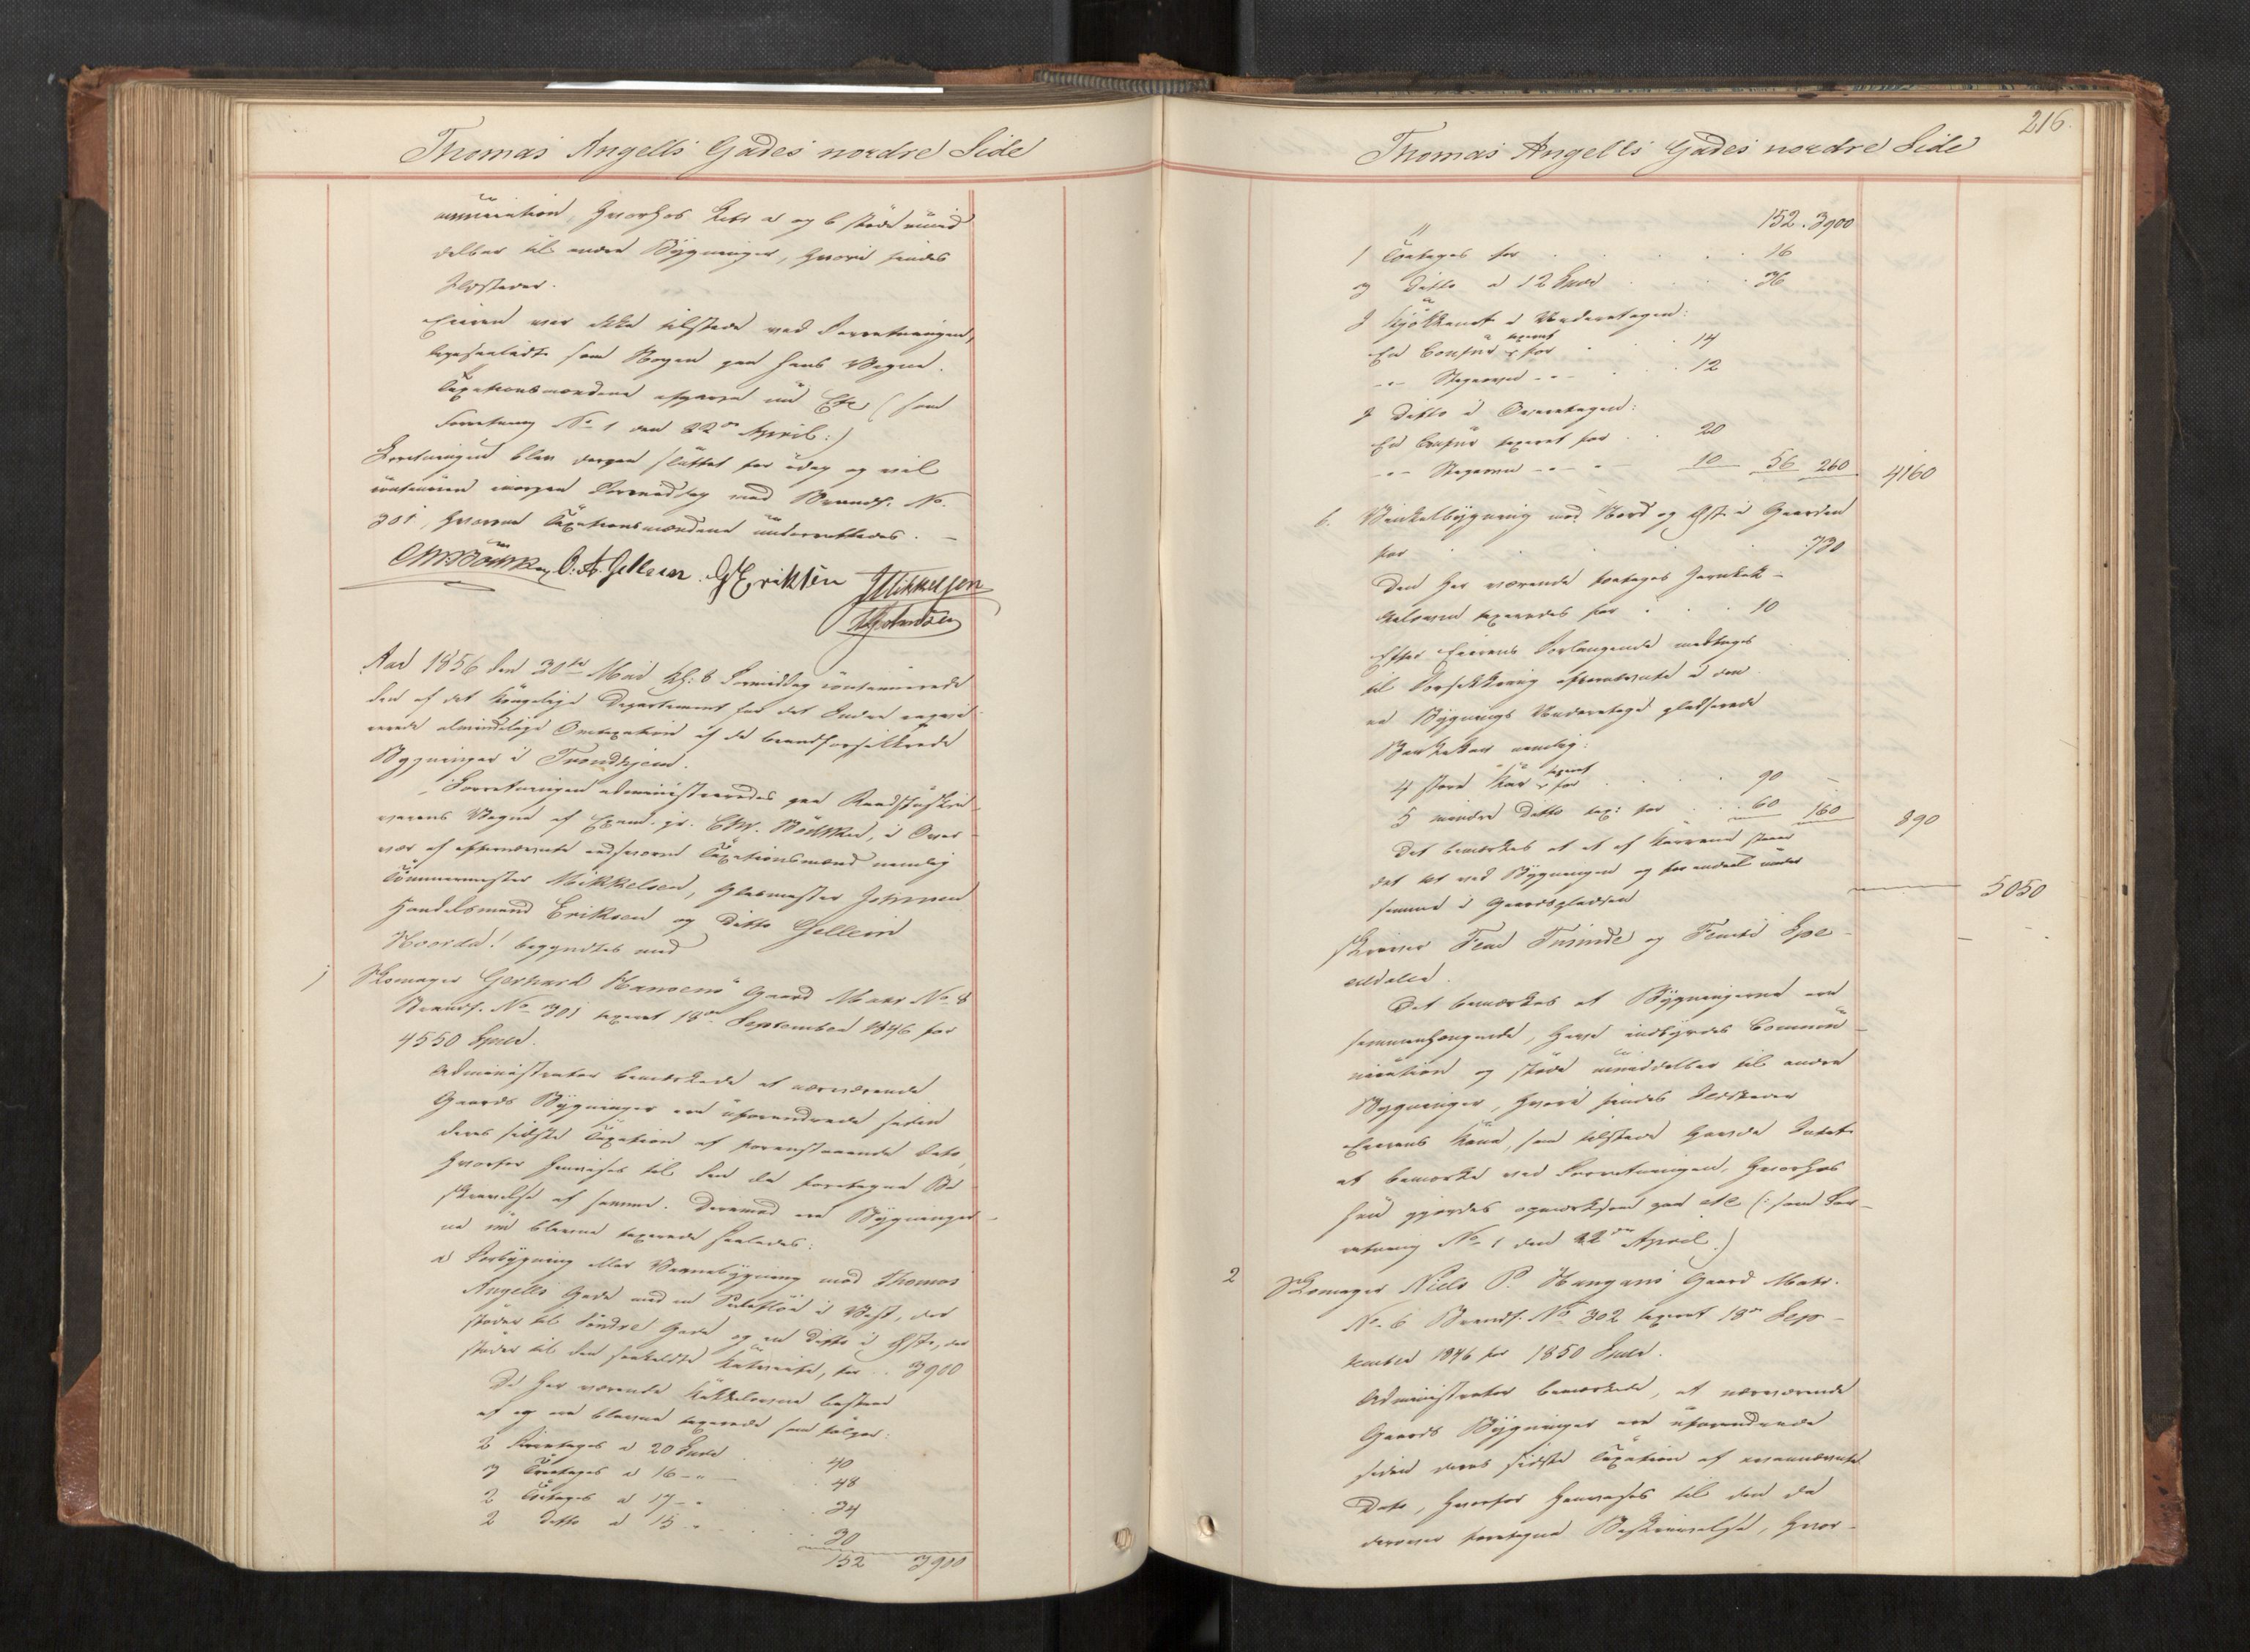 Thomas Angells Gades nordre Side
munication, hvorhos Litr a og b støde umid
delbar til andre Bygninger, hvori findes
Ildsteder.
Eieren var ikke tilstede ved Forretningen,
ligesaalidt som Nogen paa hans Vegne.
Taxationsmændene afgave nu Etc (som
Forretning No 1 den 22de April:)
Forretningen blev derpaa sluttet for idag og vil
continuere morgen Formiddag med Brandf. No.
301, hvorom Taxationsmændene underrettedes. –
O. A. Gellein. Eriksen JMikkelsen
Aar 1856 den 30te Mai Kl: 8 Formiddag continuerede
den af det kongelige Departement for det Indre
almindelige Omtaxation af de brandforsikkrede
Bygninger i Trondhjem.
Forretningen administreredes paa Raadstuskri
verens Vegne af Exam. jr. Chr. Bödtker, i Over
vær af efternævnte edsvorne Taxationsmænd nemlig
Tömmermester Mikkelsen, Glasmester Johnsen
Handelsmand Eriksen og Ditto Gellein
Hvorda! begyndtes med
1 Skomager Gerhard Hansens Gaard Matr No 8
Brandf. No 301 taxeret 18de September 1846 for
4550 Spd.
Administrator bemærkede at nærværende
Gaards Bygninger ere uforandrede siden
deres sidste Taxation af foranstaaende Dato,
hvorfor henvises til den da foretagne Be
skrivelse af samme. Derimod ere Bygninger-
ne nu blevne taxerede saaledes:
a Forbygning eller Vaanebygning mod Thomas
Angells Gade med en Sidefløi i Vest, der
støder til Søndre Gade og en Ditto i Øst, der
støder til den saakaldte, for .. 3900
De her værende Kakkelovne bestaae
af og ere blevne taxerede som følger:
2 Fireetages a 20 Spd . 40
3 Treetages a 16 – " – . 48
2 Toetages a 17 – " . . 34
2 Ditto a 15 – " . . 30
152 3900
216.
Thomas Angells Gades nordre Side
" 152. 3900
1 Toetages for . . . . 16
3 Ditto a 12 Spd . . . 36
I Kjøkkenet i Underetagen:
En Comfur taxeret for . . 14
– " – Stegeovn – " – . . 12
I Ditto i Overetagen:
En Comfur taxeret for . . 20
– " – Stegeovn – " – " 10 56 260 4160
b. Vinkelbygning mod Nord og Øst i Gaarden
for . . . . . 730
Den her værende toetages Jernkak-
kelovn taxeredes for . . . 10
Efter Eierens Forlangende medtages
til Forsikkring efternævnte i den
ne Bygnings Underetage pladserede
nemlig:
4 store Kar taxeret for . . . 90
5 mindre Ditto tax: for . . 60 160 890
Det bemærkes at et af Karrene staar
det tet ved Bygningen og for endeel under
samme i Gaardspladsen
5050
skriver Fem Tusinde og Femti Spe-
ciedaler.
Det bemærkes at Bygningerne ere
sammenhængende, have indbyrdes Commu-
nication og støde umiddelbar til andre
Bygninger, hvori findes Ildsteder
Eierens Kone, som tilstede havde Intet
at bemærke ved Forretningen, hvorhos
hun gjordes opmærksom paa etc (: som For-
retning No 1 den 22de April.)
2 Skomager Niels P. Haugans Gaard Matr.
No. 6 Brandf. No 302 taxeret 18de Sep-
tember 1846 for 1850 Spd.
Administrator bemærkede, at nærværende
Gaards Bygninger ere uforandrede
siden deres sidste Taxation af ovennævnte
Dato, hvorfor henvises til den da
derover foretagne Beskrivelse, hvor-